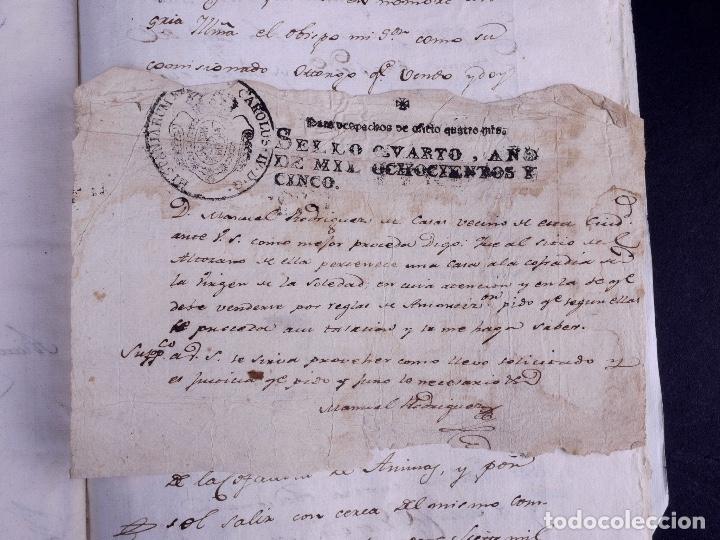 gria Mma el obispo mi Sor como su
comisionado otorgo qe vendo y doy
HISPANIARUM REX CAROLUS IV D G
Para despachos de oficio quatro mrs.
SELLO QVARTO, AÑO
DE MIL OCHOCIENTOS Y
CINCO.
D. Manuel Rodriguez de Casas vecino de esta Ciud
ante V. S. como mejor proceda digo: Que al sitio de
Altozano de ella pertenece una Casa ala cofradia de
la Virgen de la Soledad, en cuia atencion y en la de qe
debe venderse por reglas de Amortizon pido qe segun ellas
se proceda a su tasacion y se me haga saber.
Suppco a V. S. se sirva proveher como llevo solicitado
es Justicia qe pido y juro lo necesario
Manuel Rodriguez
de la Cofradia de Animas, y pon
sol salir con cerca del mismo com
mil
todocoleccion
todocoleccion.net